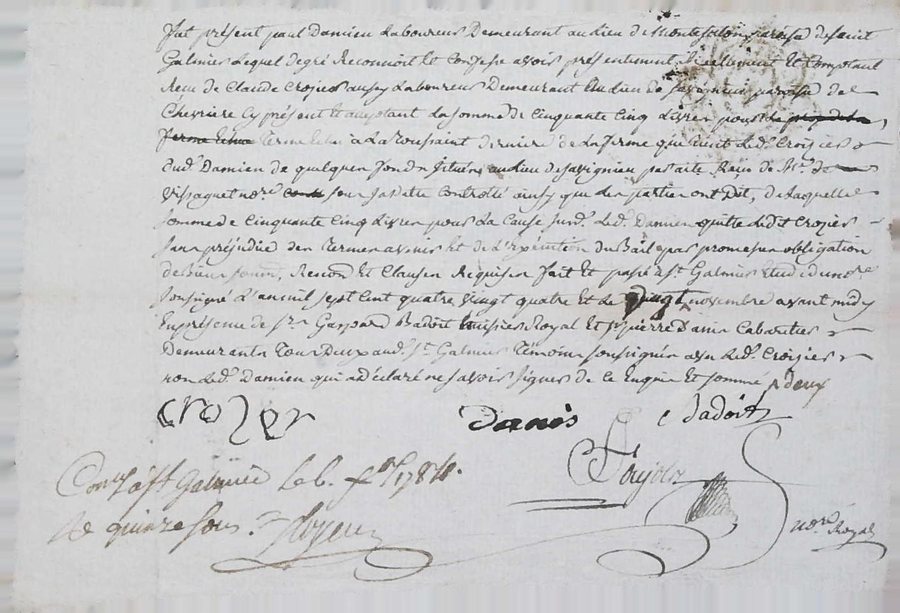 fut présent paul Damien Laboureur Demeurant au lieu de paroisse de saint
Galmier Lequel de gré Reconnoit et Confesse avoir présentement Réelement Et Comptant
Reçu de Claude Crozier aussy Laboureur Demeurant au lieu de savignieu paroisse de
Chevrière Cy présent et acceptant La somme de Cinquante Cinq Livres pour
Terme échu à La toussaint derniere de La ferme que tient Led. Crozier
dud. Damien de quelques fonds situés au lieu de savignieu par acte Reçu de Me. de
Vissaguet nore. sous sa datte Controllé ainsy que les parties ont Dit, de Laquelle
somme de Cinquante Cinq Livres pour La Cause susd. Led. Damien quitte Ledit Crozier
sans préjudice des termes a venir et de L'exécution du Bail par promesses obligation
de Biens soum. Renon. Et Clauses Requises fait Et passé à St. Galmier Etude du nore.
soussigné L'an mil sept Cent quatre vingt quatre Et Le vingt novembre avant midy
En présence de sr. Gaspard Badoit huissier Royal Et sr. pierre Danis Cabaretier
Demeurants Tous Deux aud. St. Galmier Témoins soussignés avec Led. Crozier
non Led. Damien qui a déclaré ne savoir signer de Ce Enquis Et sommé
crozier Danis Badoit
Conlé. à St Galmier Le 1784.
Re quinze sous.
nore. Royal